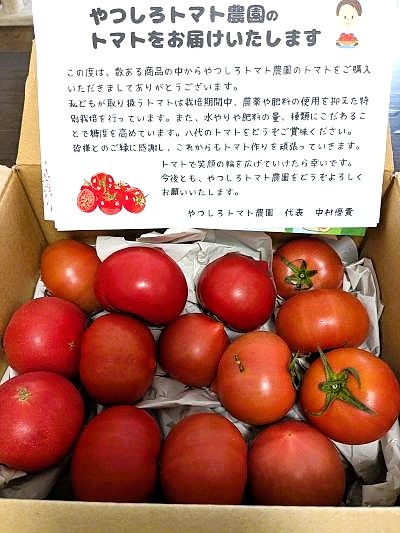 やつしろトマト農園の
トマトをお届けいたします
この度は、数ある商品の中からやつしろトマト農園のトマトをご購入
いただきましてありがとうございます。
私どもが取り扱うトマトは栽培期間中、農薬や肥料の使用を抑えた特
別栽培を行っています。また、水やりや肥料の量、種類にこだわるこ
とで糖度を高めています。八代のトマトをどうぞご賞味ください。
皆様とのご縁に感謝し、これからもトマト作りを頑張っていきます。
トマトで笑顔の輪を広げていけたら幸いです。
今後とも、やつしろトマト農園をどうぞよろしく
お願いいたします。
やつしろトマト農園 代表 中村優貴